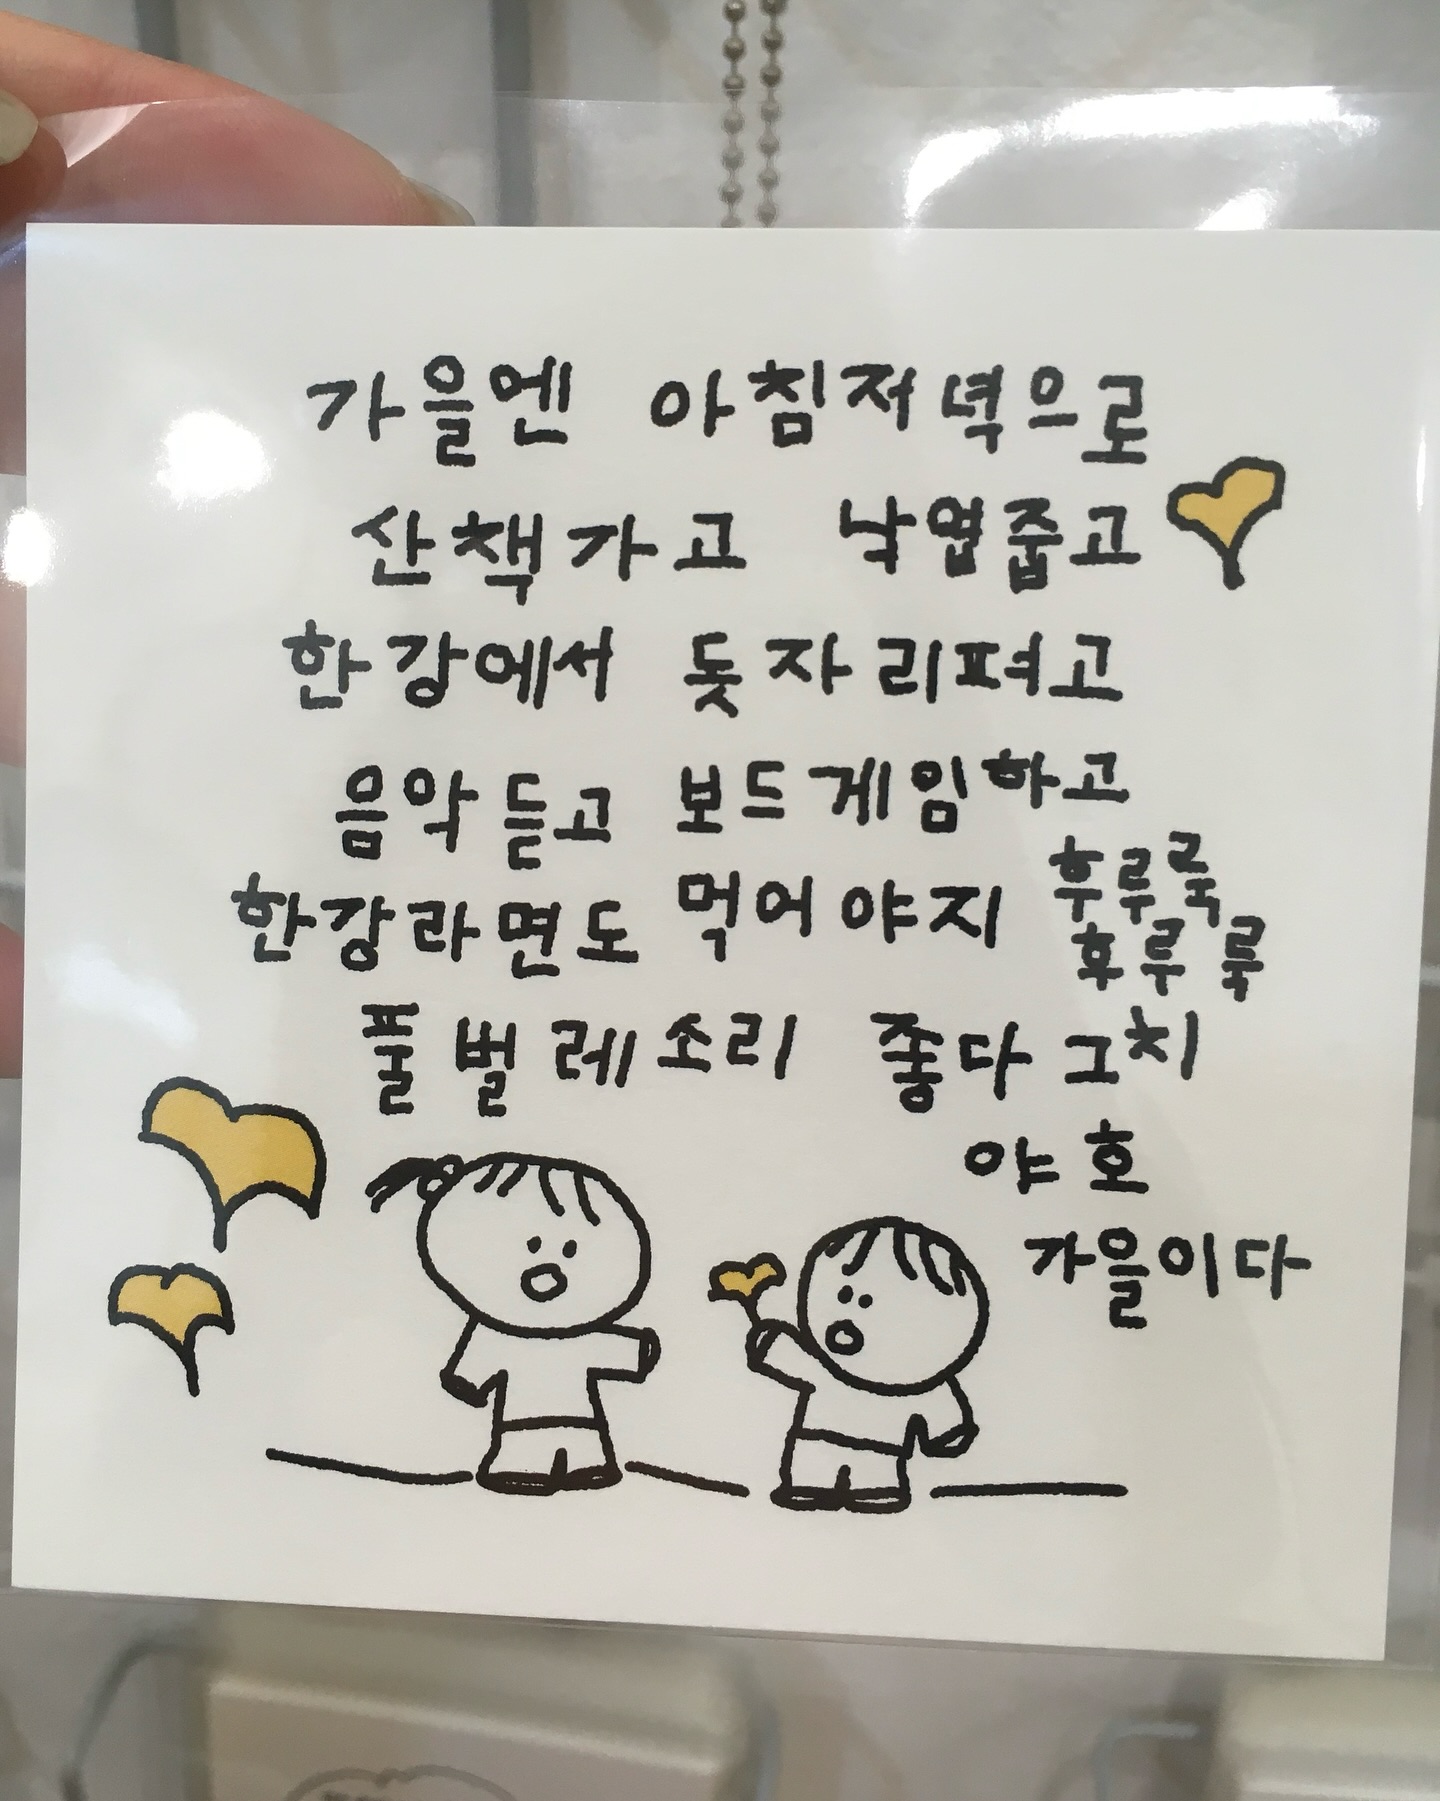 가을엔 아침저녁으로
산책가고 낙엽줍고
한강에서 돗자리펴고
음악듣고 보드게임하고
한강라면도 먹어야지 후루룩
후루룩
풀벌레소리 좋다그치
야호
가을이다